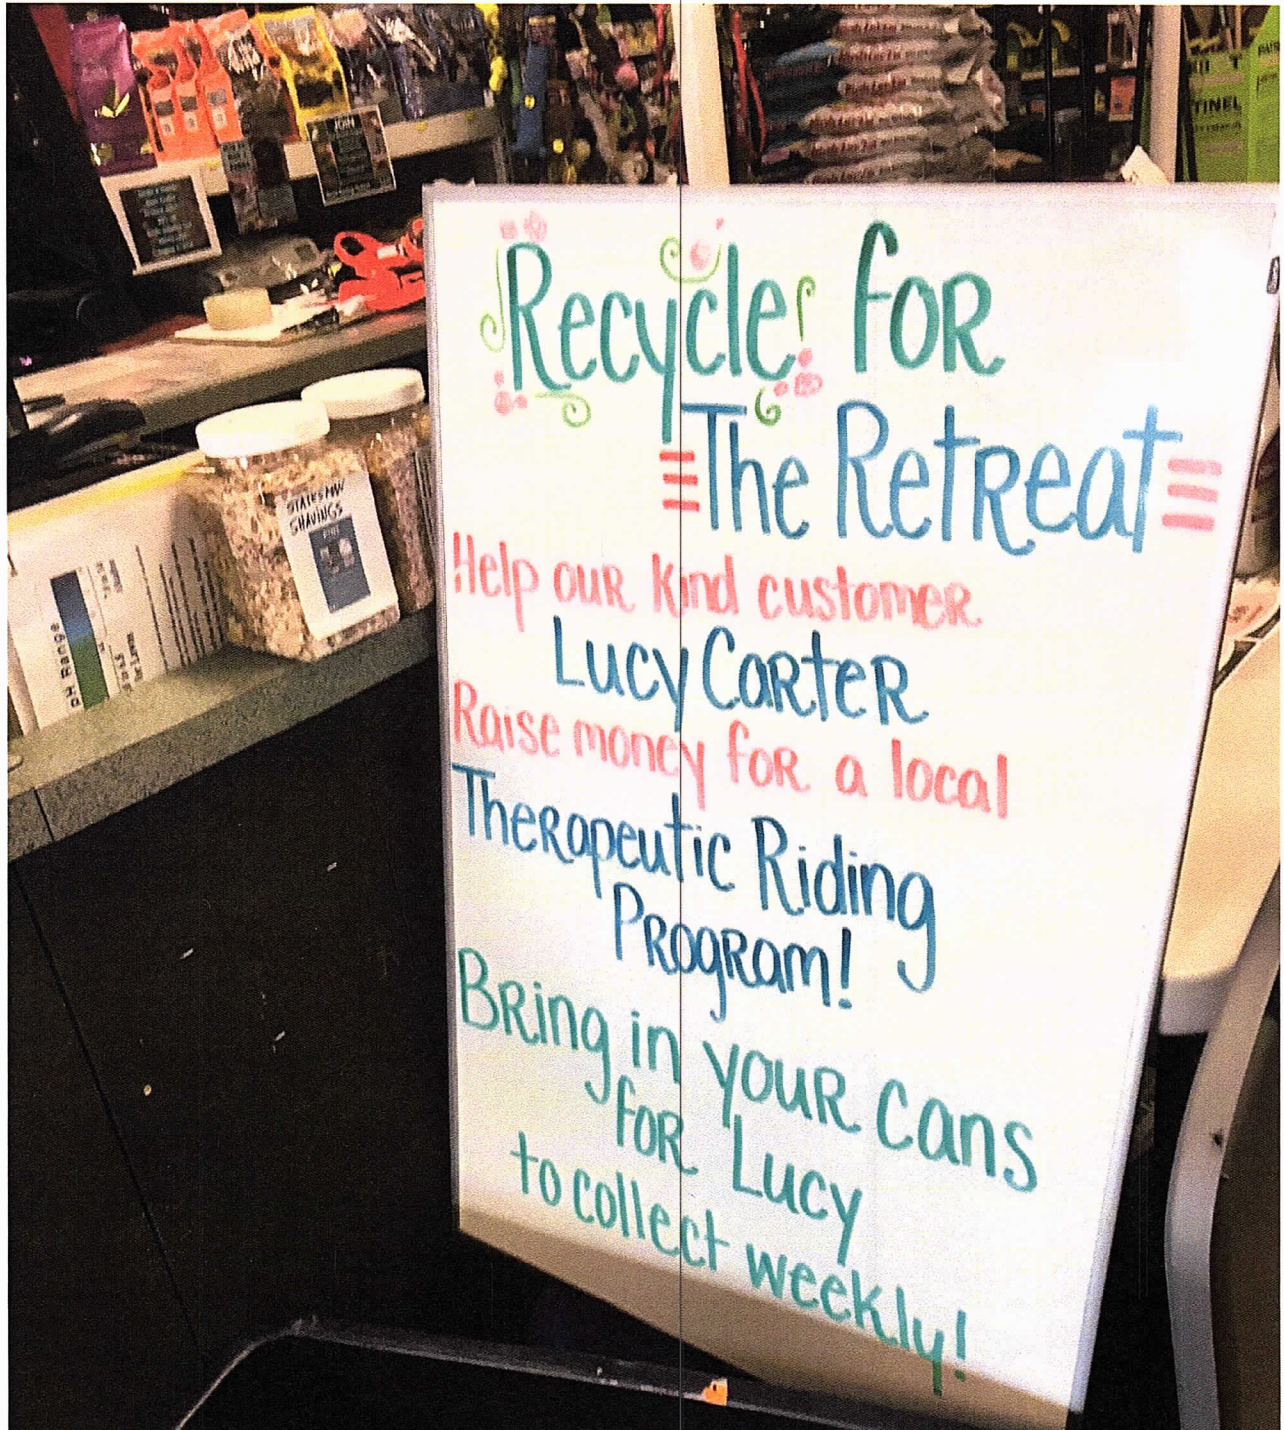 Recycle for
The Retreat
Help our kind customer
Lucy Carter
Raise money for a local
Therapeutic Riding
Program!
Bring in your cans
for Lucy
to collect weekly!
SHAVINGS
pH Range
JOIN
TINEL